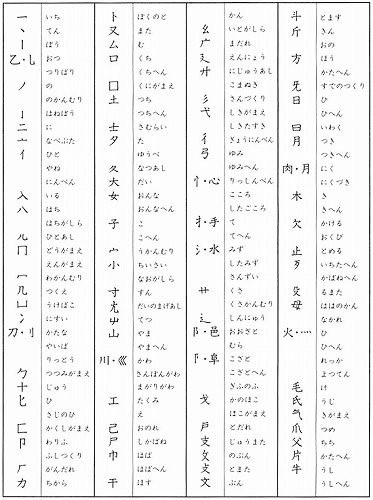 一 いち
丶 てん
丨 ぼう
乙・乚 おつ
つりばり
丿 の
のかんむり
亅 はねぼう
二 に
亠 なべぶた
亻 ひと
やね
にんべん
入 いる
八 はち
はちがしら
儿 ひとあし
冂 どうがまえ
えんがまえ
冖 わかんむり
几 つくえ
凵 うけばこ
冫 にすい
刀・刂 かたな
やいば
りっとう
勹 つつみがまえ
十 じゅう
匕 ひ
さじのひ
匚 かくしがまえ
卩 わりふ
ふしづくり
厂 がんだれ
力 ちから
卜 ぼくのと
又 また
厶 む
口 くち
くちへん
囗 くにがまえ
土 つち
つちへん
士 さむらい
夕 た
ゆうべ
夂 なつあし
大 だい
女 おんな
おんなへん
子 こ
こへん
宀 うかんむり
小 ちいさい
なおがしら
寸 すん
尢 だいのまげあし
屮 てつ
山 やま
やまへん
川・巛 かわ
さんぼんがわ
まがりがわ
工 たくみ
え
己 おのれ
尸 しかばね
巾 はば
はばへん
干 ほす
かん
幺 いとがしら
广 まだれ
廴 えんにょう
廾 にじゅうあし
こまぬき
彡 さんづくり
弋 しきがまえ
したきすき
彳 ぎょうにんべん
弓 ゆみ
ゆみへん
忄・心 りっしんべん
こころ
したごころ
扌・手 て
てへん
氵・水 みず
したみず
さんずい
艹 くさ
くさかんむり
辶 しんにゅう
阝・邑 おおざと
むら
阝・阜 こざと
こざとへん
ぎふのふ
戈 かのほこ
ほこがまえ
戸 とだれ
支 じゅうまた
攵 のぶん
攴 とまた
文 ぶん
斗 とます
斤 きん
おの
方 ほう
かたへん
旡 すでのつくり
日 ひ
ひへん
曰 いわく
月 つき
つきへん
肉・月 にく
にくづき
木 き
きへん
欠 かける
おくび
止 とめる
歹 いちたへん
かばねへん
殳 るまた
母 ははのかん
なかれ
火・灬 ひ
ひへん
れっか
まつてん
毛 け
氏 うじ
气 きがまえ
爪 つめ
父 ちち
片 かたへん
牛 うし